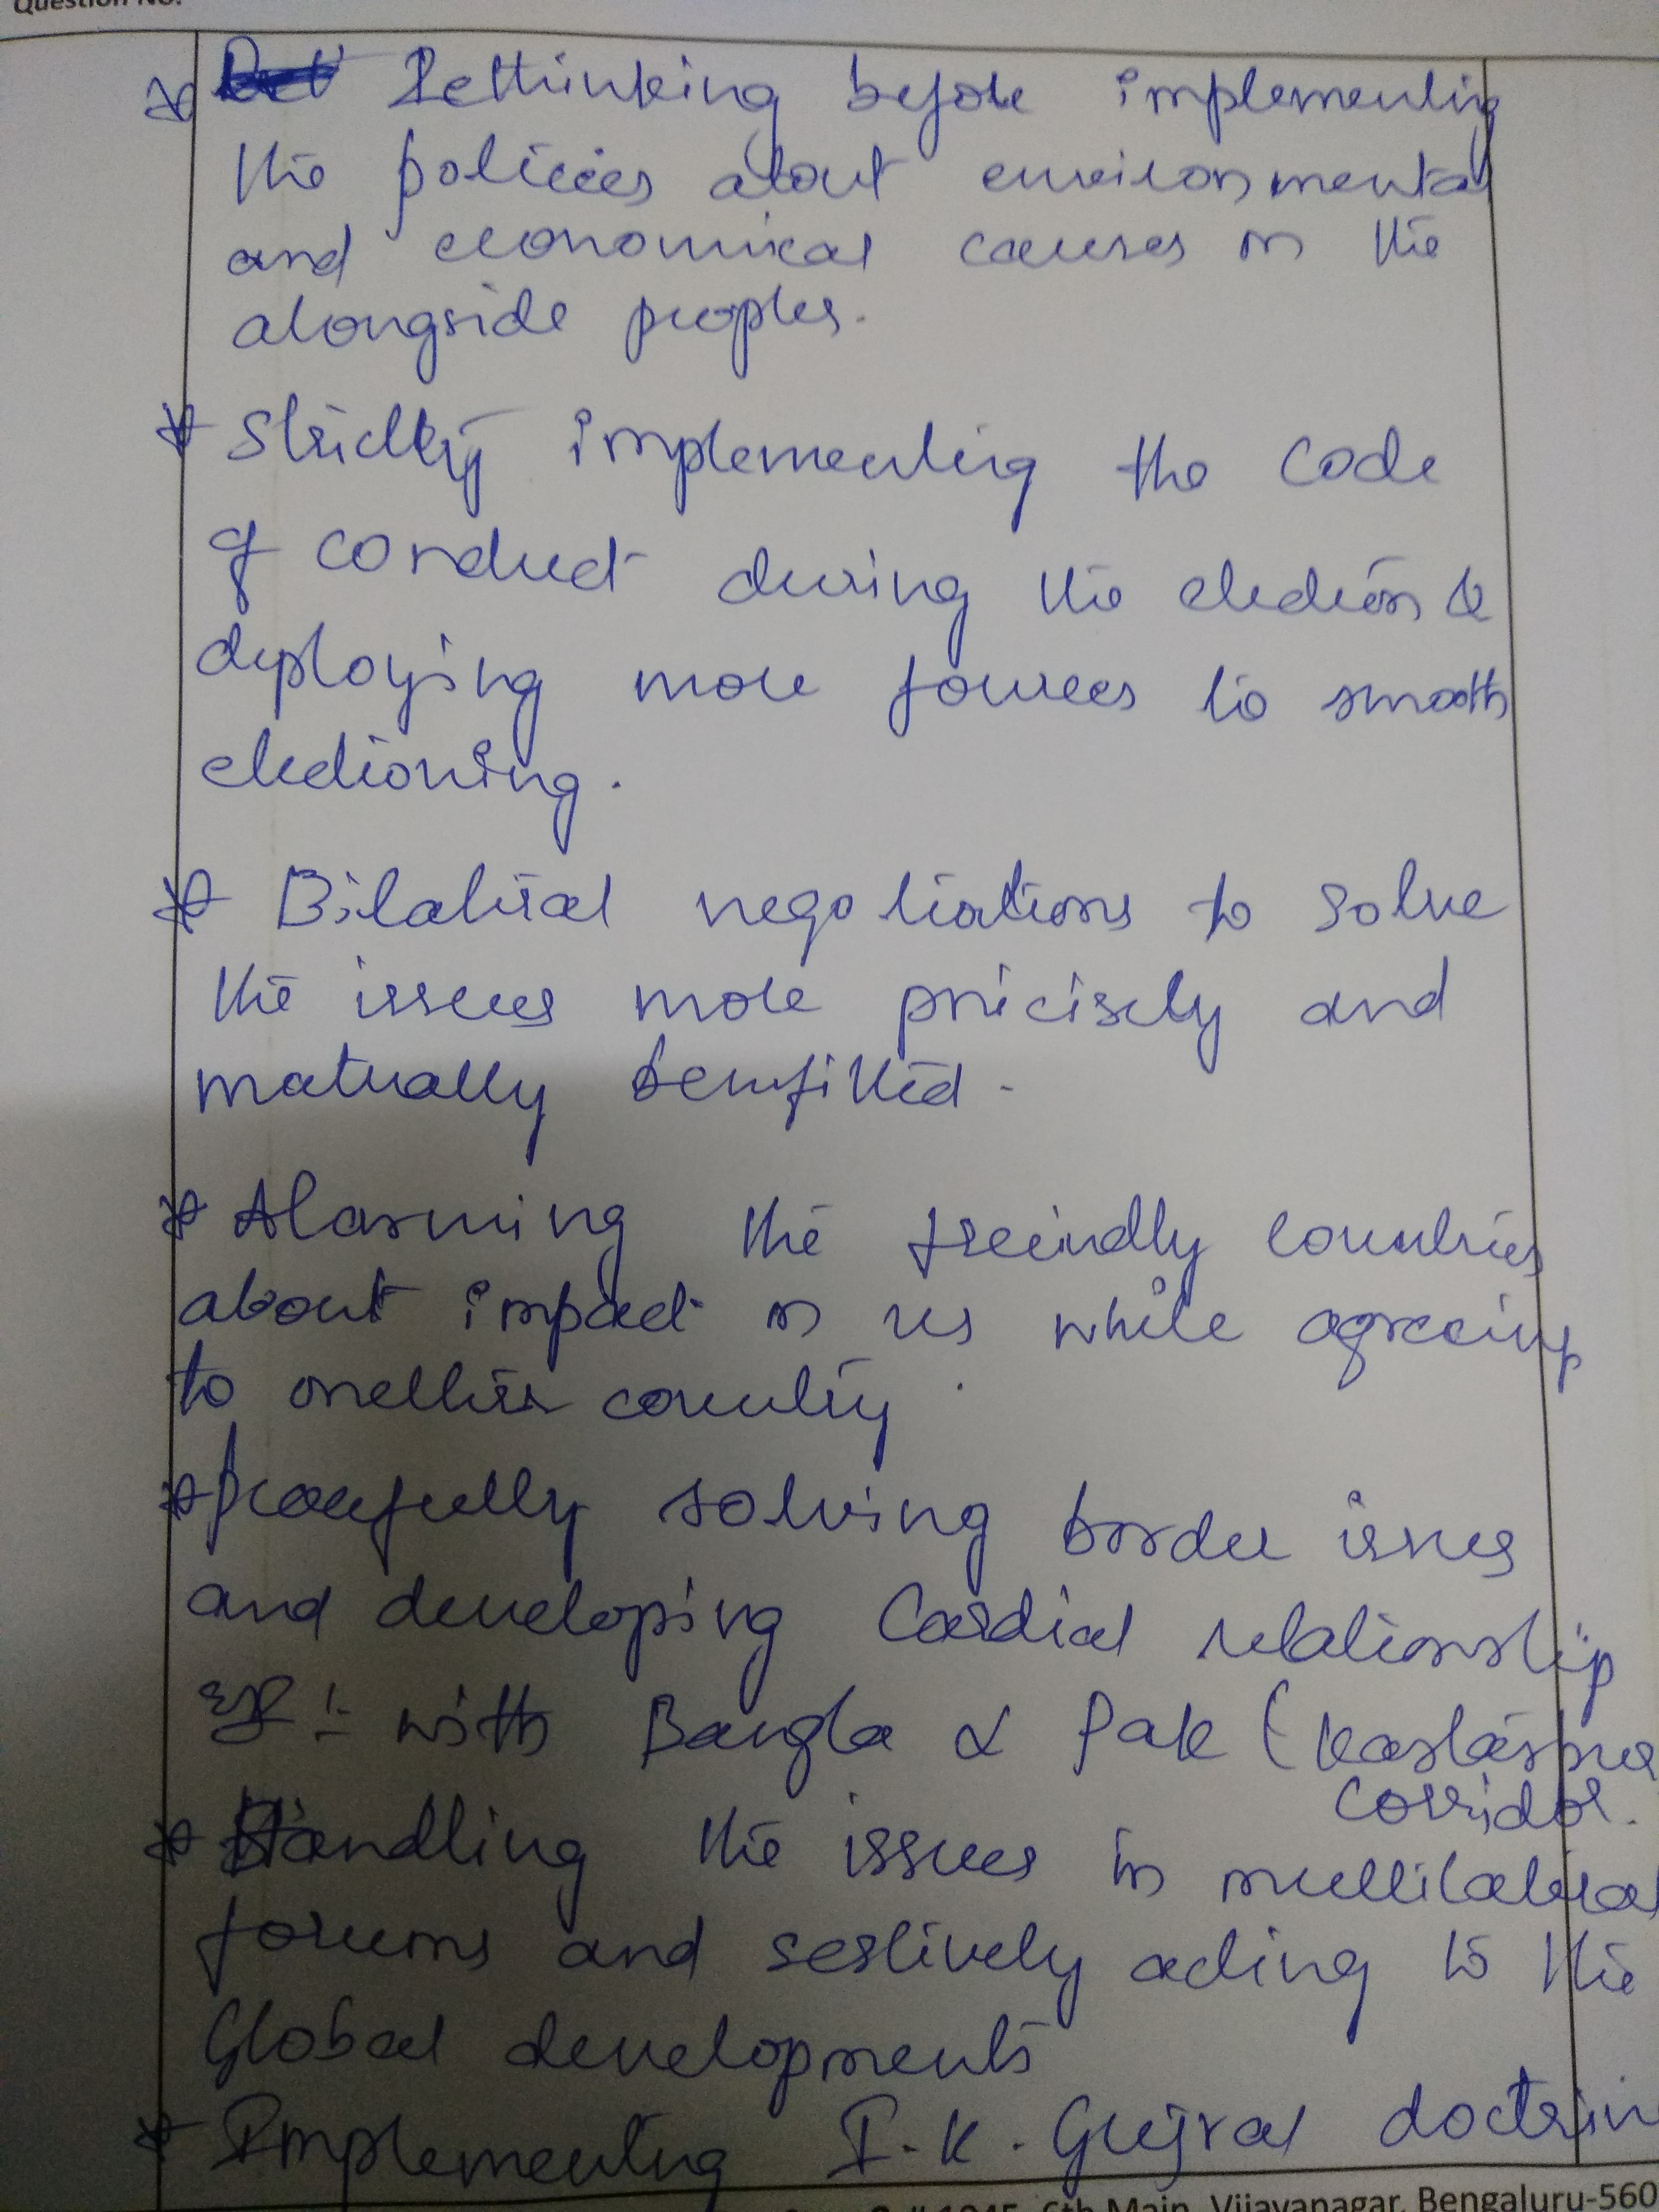 Question No.
* Rethinking before implementing
the policies about environmental
and economical causes on the
alongside peoples.
* Strictly implementing the code
of conduct during the election &
deploying more fources to smooth
electioning.
* Bilateral negotiations to solve
the issues more pricisely and
matually benifitted.
* Alarming the freindly countries
about impact on us while agreeing
to country.
* peacefully solving border issues
and developing Cordial relationship
ex :- with Bangla & Pak (
corridor.
* Handling the issues in multilateral
forums and acting to the
Global developments
* Implementing I.K. Gujral doctrin
6th Main, Vijayanagar, Bengaluru-560